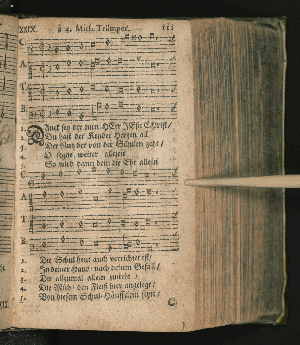 XXIX. à 4. Mich. Trümper. 111
C.
A.
T.
B.
1. Danck sey dir nun HErr JESu Christ /
2. Du hast der Kinder Hertzen all
3. Der Nutz der von der Schulen geht /
4. O segne weiter allezeit
5. So wird dann dein die Ehr allein
C.
A
T.
B
1. Die Schul heut auch verrichtet ist /
2. In deiner Hand / nach deinem Gefall /
3. Dir allzumal allein zusteht /
4. Die Müh / den Fleiß hier angelegt /
5. Von diesem Schul-Häufflein seyn /